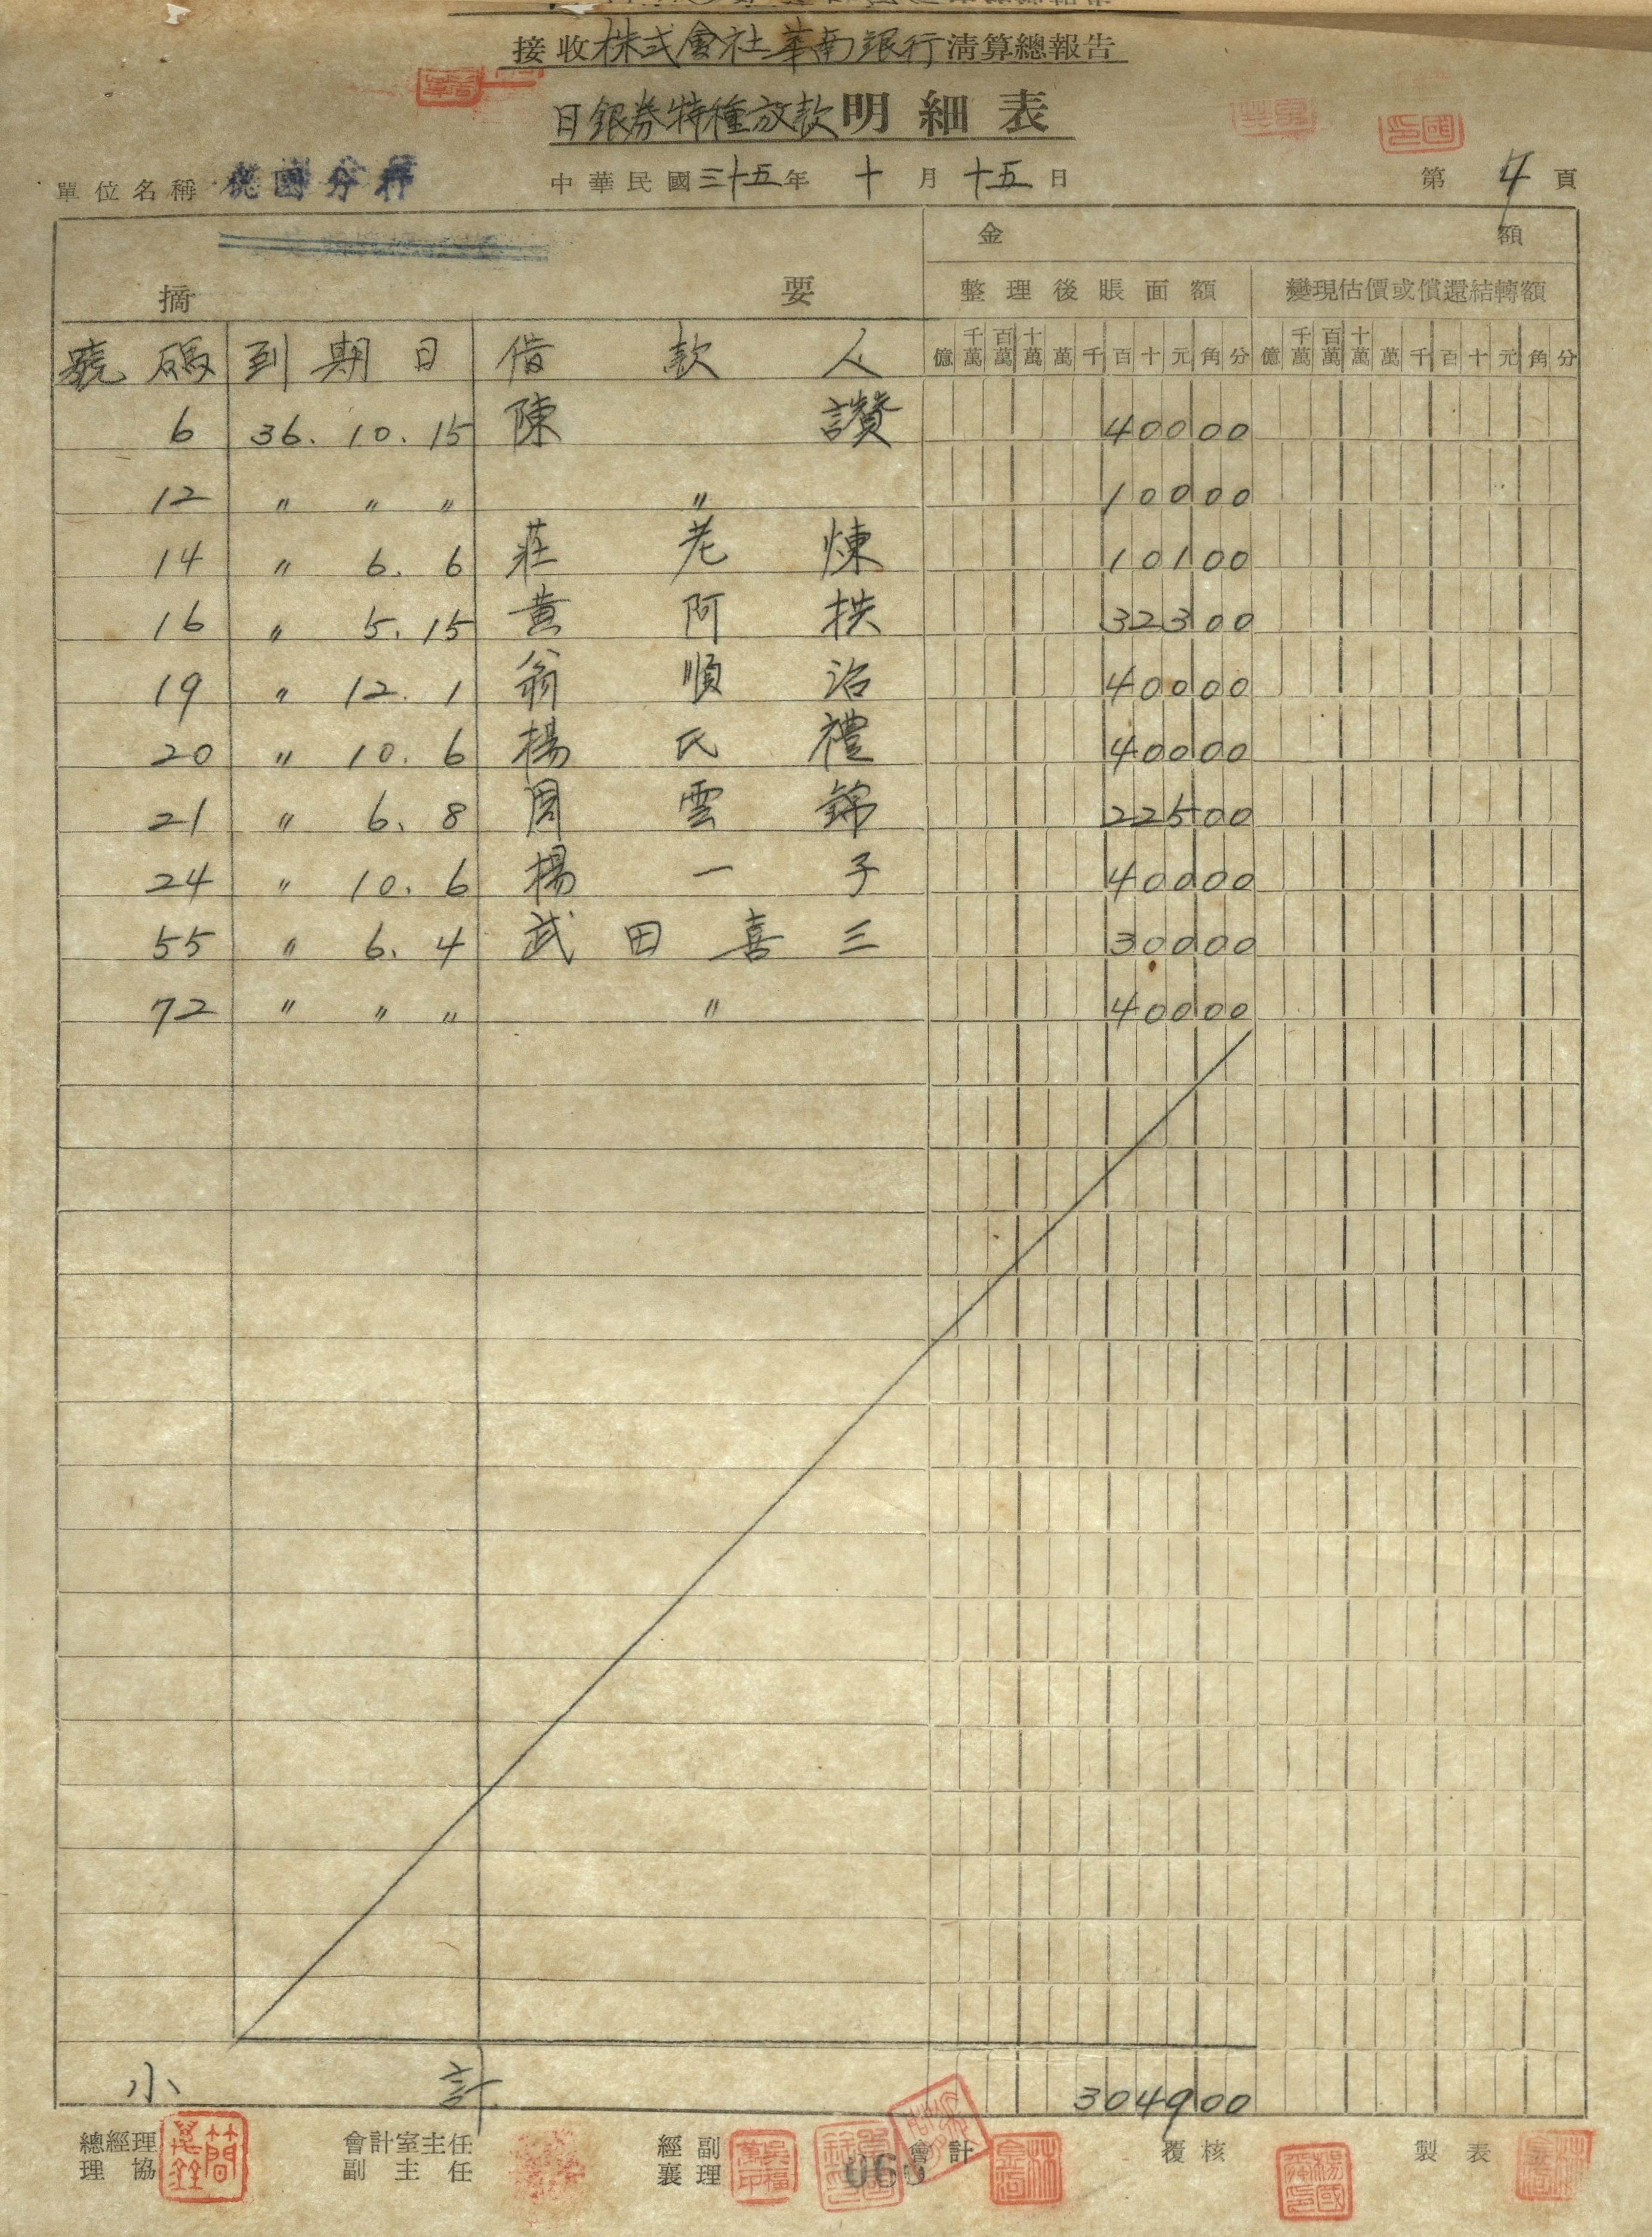 接收株式會社華南銀行清算總報告
日銀券特種放款明細表
單位名稱 桃園分行 中華民國三十五年十月十五日 第4頁
金額
摘要 整理後賬面額 變現估價或償還結轉額
號碼 到期日 借款人 億 千萬 百萬 十萬 萬 千 百 十 元 角 分 億 千萬 百萬 十萬 萬 千 百 十 元 角 分
6 36. 10. 15 陳讚 40000
12 〃 〃 〃 〃 10000
14 〃 6. 6 莊老煉 10100
16 〃 5. 15 黃阿拱 32300
19 〃 12. 1 翁順治 40000
20 〃 10. 6 楊氏禮 40000
21 〃 6. 8 周雲錦 22500
24 〃 10. 6 楊一子 40000
55 〃 6. 4 武田喜三 30000
72 〃 〃 〃 〃 40000
小計 304900
總經理 會計室主任 經副 會計 覆核 製表
理協 副主任 襄理